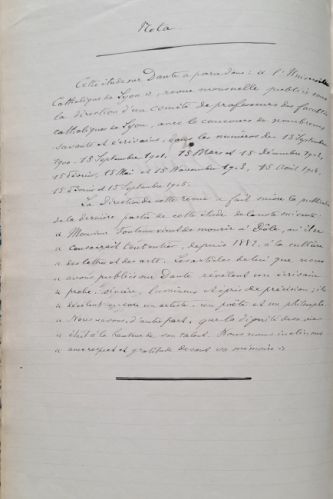 Nota
Cette étude sur Dante a paru dans : « l'Université
Catholique de Lyon », revue mensuelle publiée sous
la direction d'un comité de professeurs des facultés
catholiques de Lyon, avec le concours de nombreux
savants et écrivains, dans les numéros des 15 Septembre
1900, 15 Septembre 1901, 15 Mars et 15 Décembre 1902,
15 Février, 15 Mai et 15 Novembre 1903, 15 Août 1904,
15 Février et 15 Septembre 1905.
La Direction de cette revue a fait suivre la publication
de la dernière partie de cette étude de la note suivante :
« Monsieur vient de mourir à Dôle, où il se
« consacrait tout entier, depuis 1882, à la culture
« des lettres et des arts. Les articles de lui que nous
« avons publiés sur Dante révèlent un écrivain
« probe, sincère, lumineux et épris de précision, ils
« révèlent encore un artiste, un poète et un philosophe.
« Nous savons, d'autre part, que la dignité de sa vie
« était à la hauteur de son talent. Nous nous inclinons
« avec respect et gratitude devant sa mémoire. »